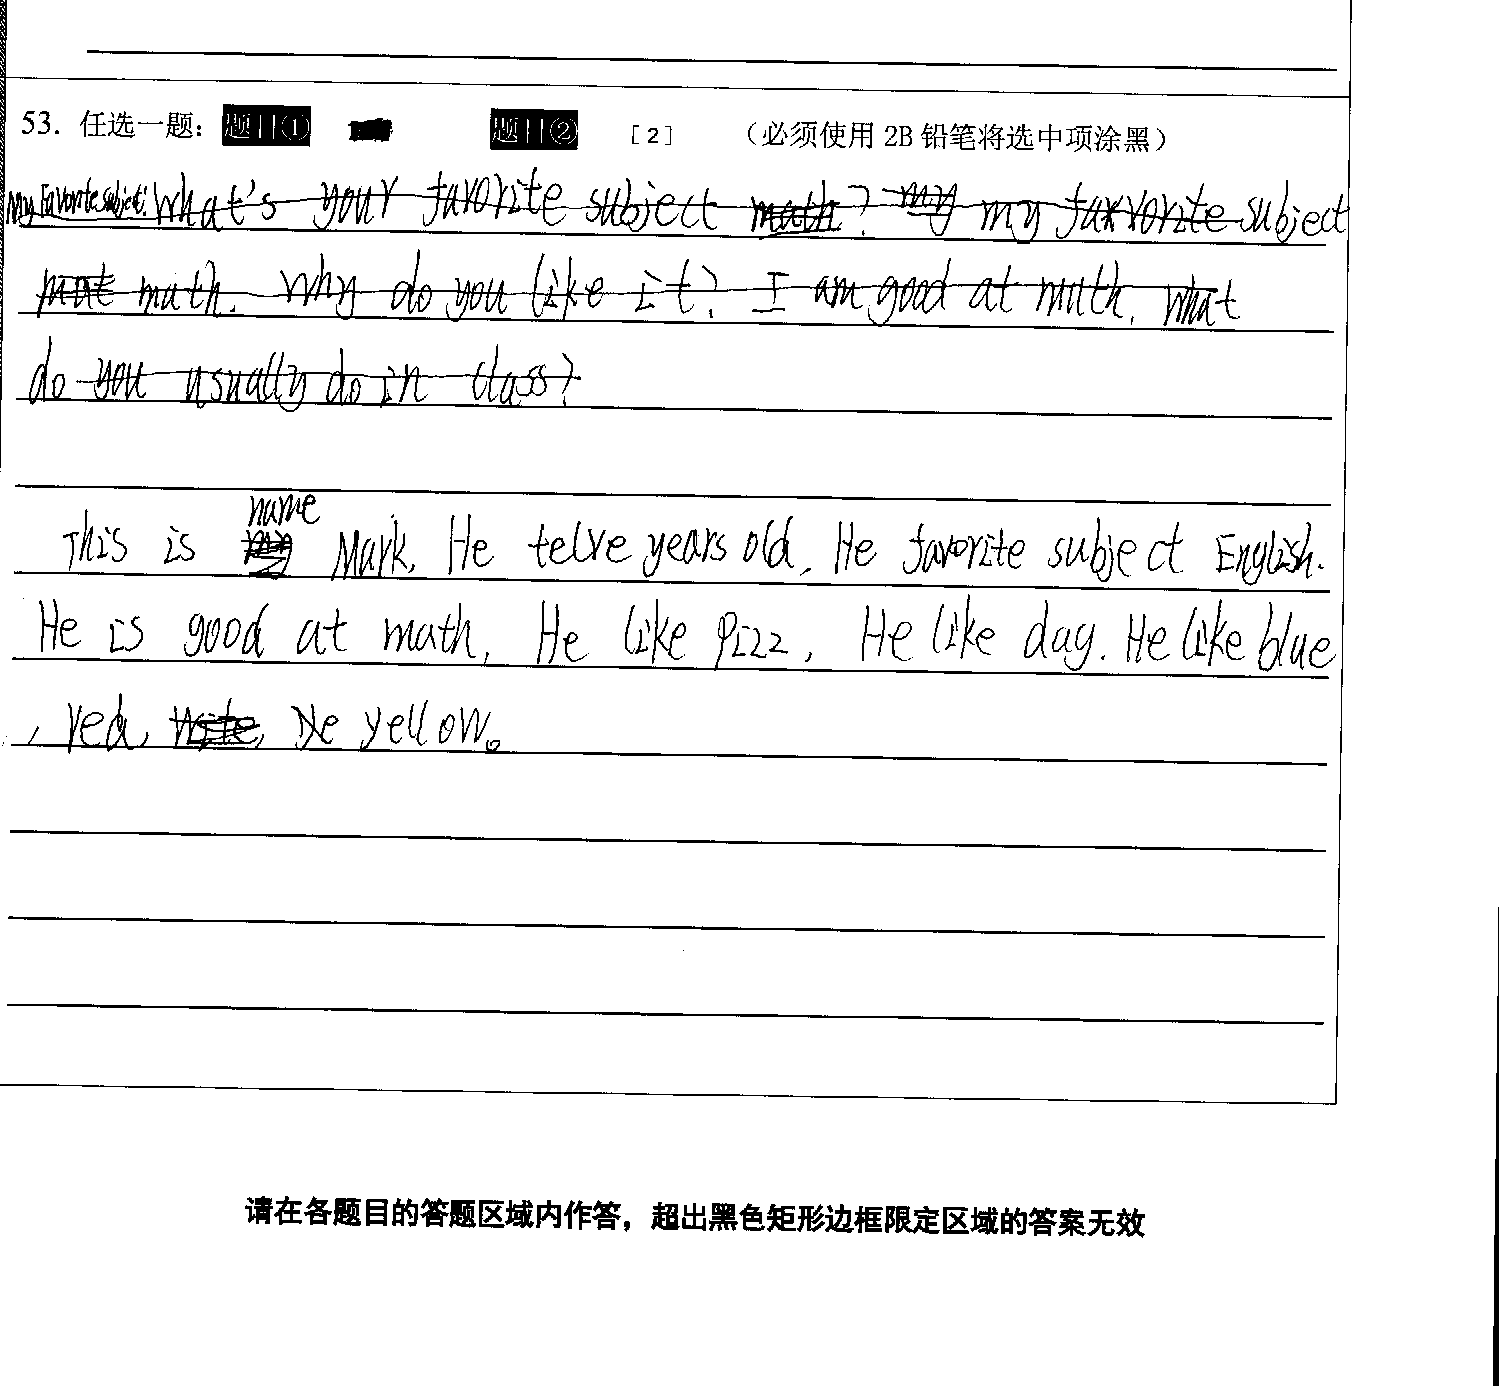 53. 任选一题： 题目① 题目② [2] （必须使用 2B 铅笔将选中项涂黑）
My Favorite subject: What's your favorite subject math? my my favorite subject
mat math. Why do you like it? I am good at math. what
do you usually do in class?
name
This is my Mark. He telve years old. He favorite subject English.
He is good at math. He like pizz. He like day. He like blue
, red, write, yellow。
请在各题目的答题区域内作答，超出黑色矩形边框限定区域的答案无效